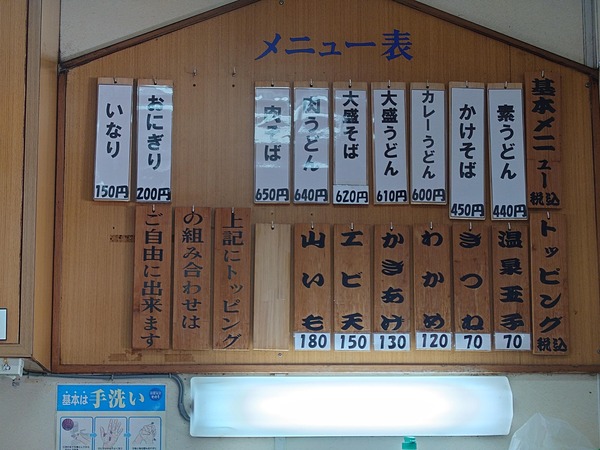 メニュー表
基本メニュー 税込
素うどん 440円
かけそば 450円
カレーうどん 600円
大盛うどん 610円
大盛そば 620円
肉うどん 640円
肉そば 650円
おにぎり 200円
いなり 150円
トッピング 税込
温泉玉子 70
きつね 70
わかめ 120
かきあげ 130
エビ天 150
山いも 180
上記にトッピング
の組み合わせは
ご自由に出来ます
基本は手洗い